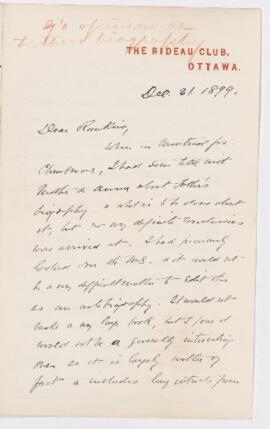 G's opinion re
Father's biography
THE RIDEAU CLUB,
OTTAWA.
Dec. 31. 1899.
Dear Rankine,
When in Montreal for
Christmas, I had some talk with
Mother & Anna about Father's
biography & what is to be done about
it, but no very definite conclusion
was arrived at. I had previously
looked over the MS. & it would not
be a very difficult matter to edit this
as an autobiography. It would not
make a very large book, but I fear it
would not be a generally interesting
one as it is largely matter of
fact & includes long extracts from